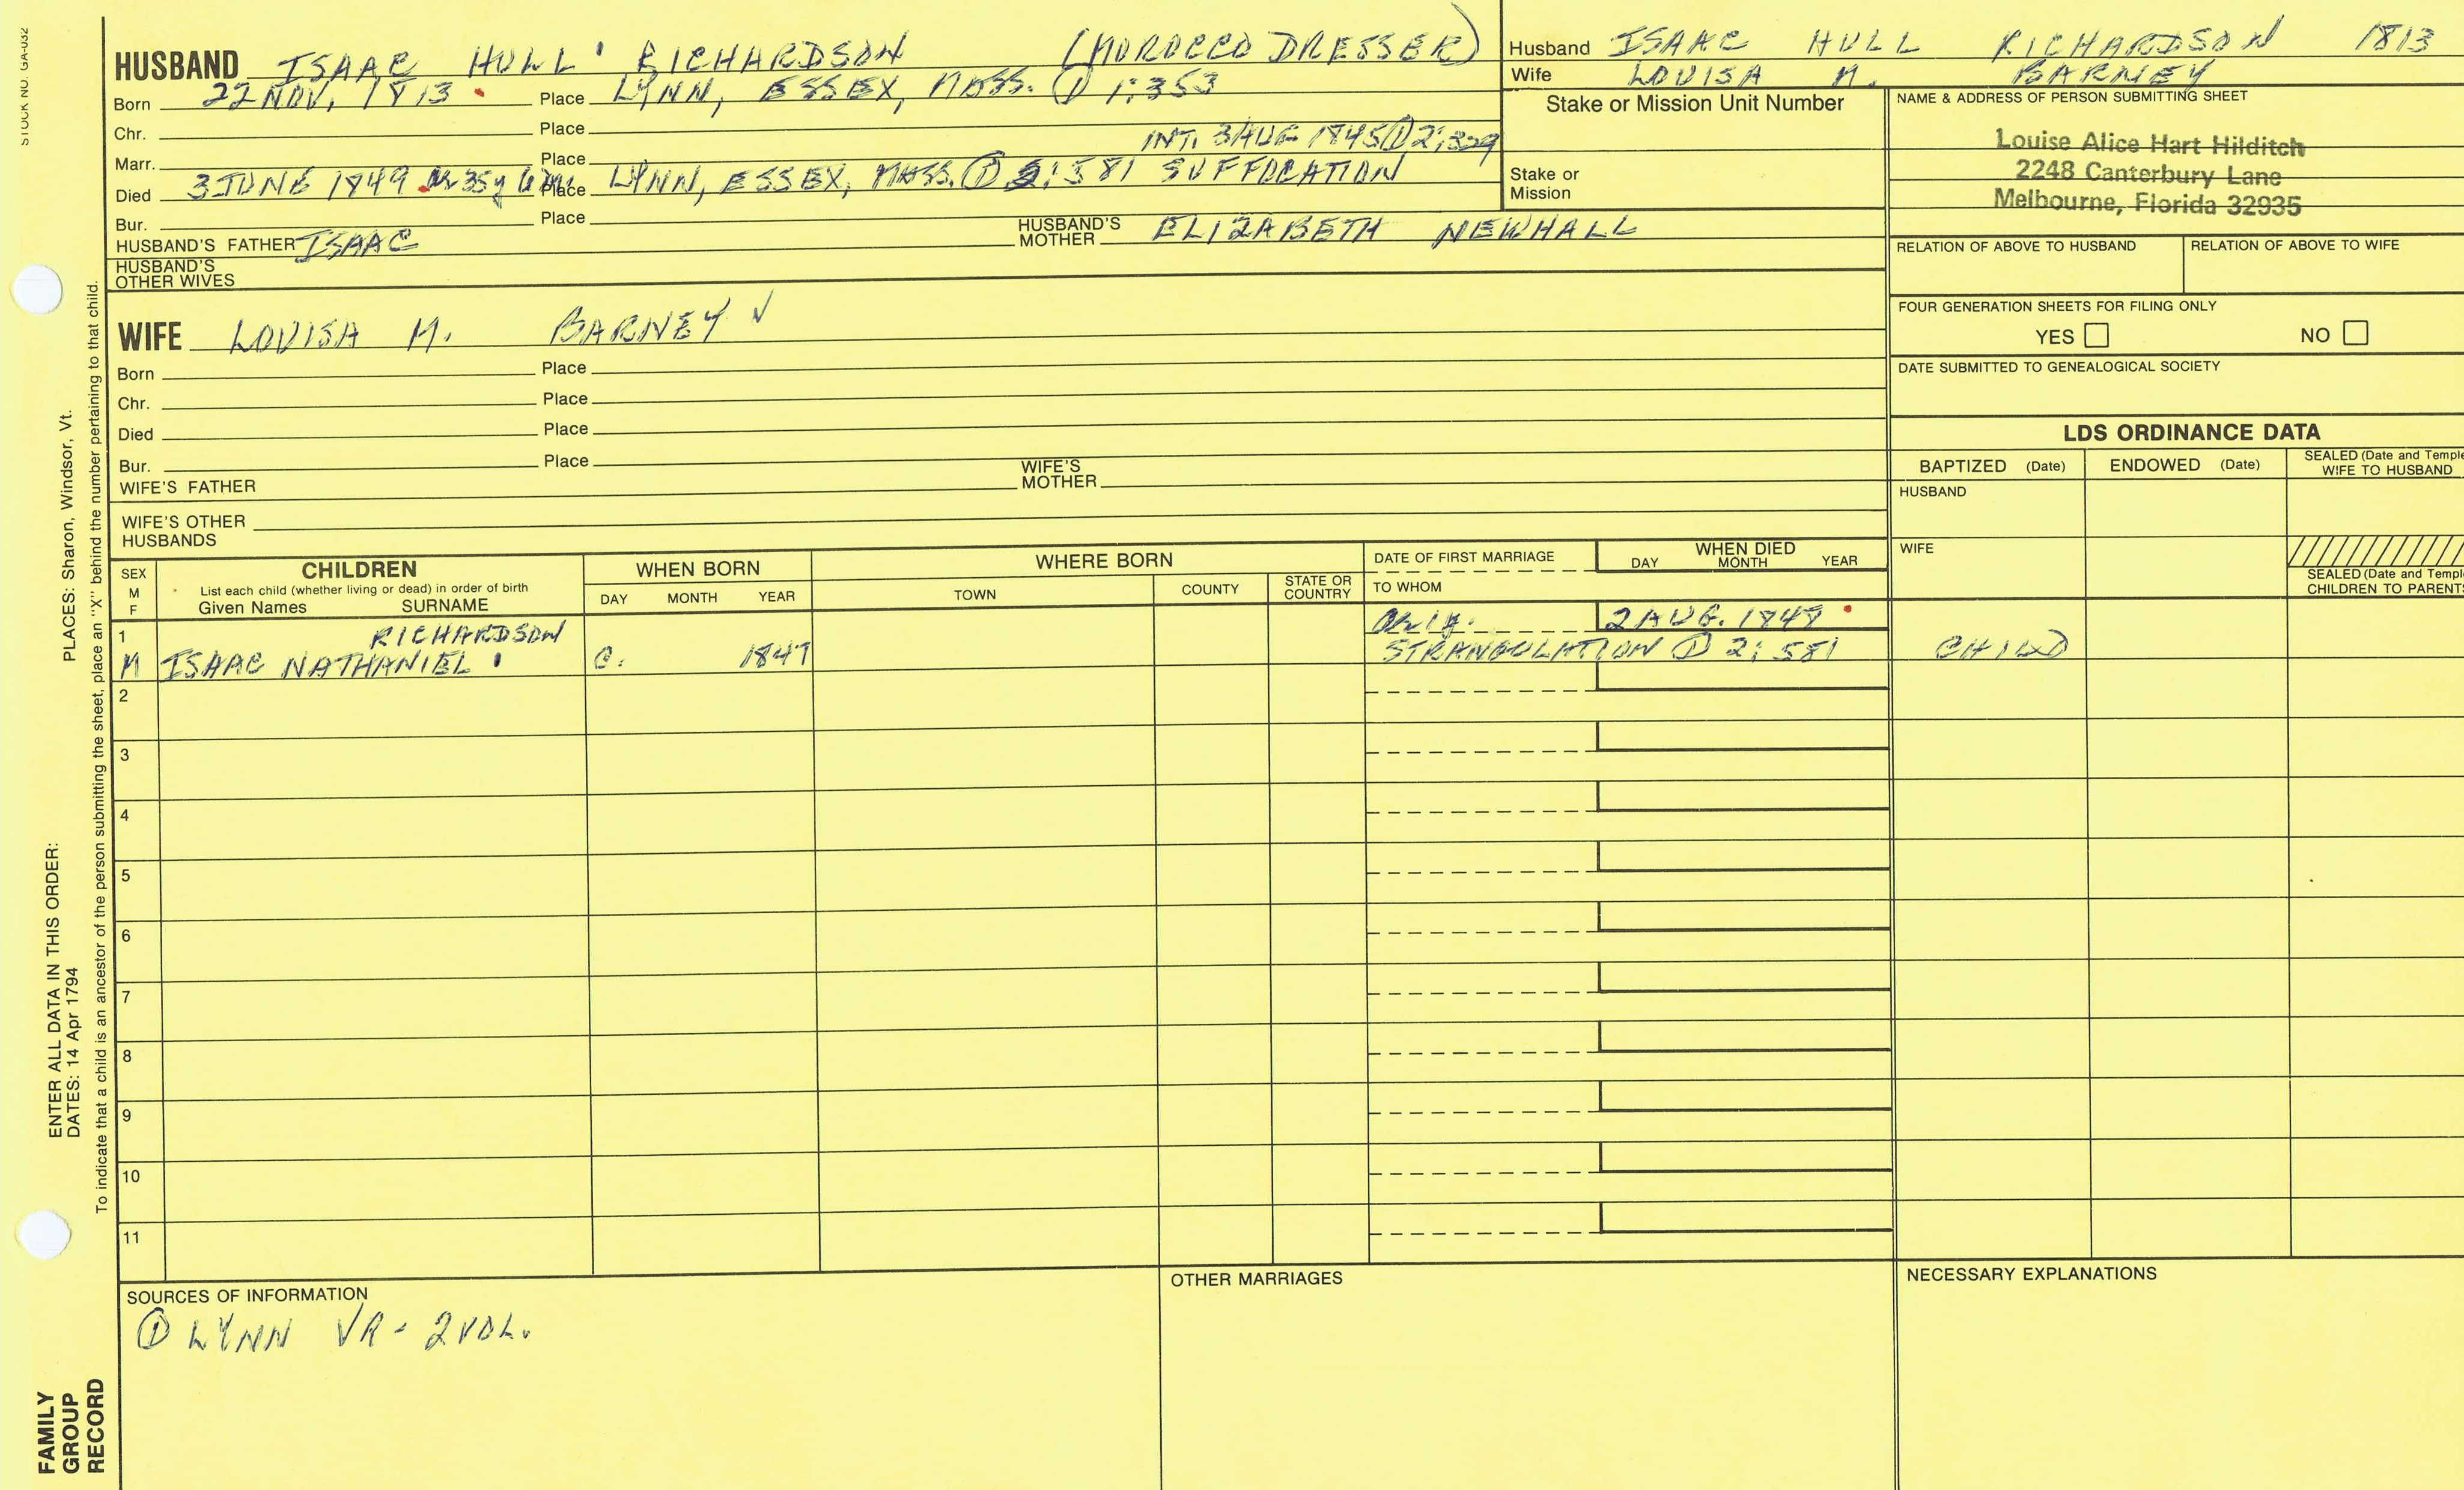 STOCK NO. GA-032
HUSBAND ISAAC HULL RICHARDSON (MOROCCO DRESSER)
Born 22 NOV. 1813 Place LYNN, ESSEX, MASS. ① 1:353
Chr. Place
Marr. Place INT. 3 AUG 1845 ① 2:329
Died 3 JUNE 1849 Place LYNN, ESSEX, MASS. ① 2:581 SUFFOCATION
Bur. Place
HUSBAND'S FATHER ISAAC HUSBAND'S MOTHER ELIZABETH NEWHALL
HUSBAND'S OTHER WIVES
Husband ISAAC HULL RICHARDSON 1813
Wife LOUISA M. BARNEY
Stake or Mission Unit Number
Stake or Mission
NAME & ADDRESS OF PERSON SUBMITTING SHEET
Louise Alice Hart Hilditch
2248 Canterbury Lane
Melbourne, Florida 32935
RELATION OF ABOVE TO HUSBAND RELATION OF ABOVE TO WIFE
FOUR GENERATION SHEETS FOR FILING ONLY
YES NO
DATE SUBMITTED TO GENEALOGICAL SOCIETY
WIFE LOUISA M. BARNEY ✓
Born Place
Chr. Place
Died Place
Bur. Place
WIFE'S FATHER WIFE'S MOTHER
WIFE'S OTHER HUSBANDS
LDS ORDINANCE DATA
BAPTIZED (Date) ENDOWED (Date) SEALED (Date and Temple
WIFE TO HUSBAND
HUSBAND
WIFE
SEALED (Date and Templ
CHILDREN TO PARENTS
SEX M F
CHILDREN
List each child (whether living or dead) in order of birth
Given Names SURNAME
WHEN BORN
DAY MONTH YEAR
WHERE BORN
TOWN COUNTY STATE OR COUNTRY
DATE OF FIRST MARRIAGE
TO WHOM
WHEN DIED
DAY MONTH YEAR
1 RICHARDSON 2 AUG. 1848
M ISAAC NATHANIEL C. 1847 STRANGULATION ① 2:581 CHILD
2
3
4
5
6
7
8
9
10
11
SOURCES OF INFORMATION
① LYNN VR - 2 VOL.
OTHER MARRIAGES
NECESSARY EXPLANATIONS
ENTER ALL DATA IN THIS ORDER:
DATES: 14 Apr 1794
PLACES: Sharon, Windsor, Vt.
To indicate that a child is an ancestor of the person submitting the sheet, place an "X" behind the number pertaining to that child.
FAMILY
GROUP
RECORD